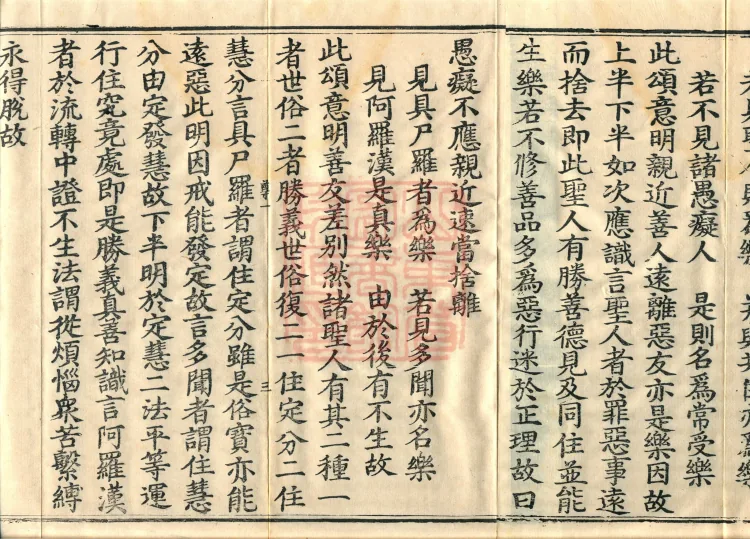 若不見諸愚癡人　是則名爲常受樂
此頌意明親近善人遠離惡友亦是樂因故
上半下半如次應識言聖人者於罪惡事遠
而捨去即此聖人有勝善德見及同住並能
生樂若不修善品多爲惡行迷於正理故曰
愚癡不應親近速當捨離
見具尸羅者爲樂　若見多聞亦名樂
見阿羅漢是真樂　由於後有不生故
此頌意明善友差別然諸聖人有其二種一
者世俗二者勝義世俗復二一住定分二住
尊一　三
慧分言具尸羅者謂住定分雖是俗寶亦能
遠惡此明因戒能發定故言多聞者謂住慧
分由定發慧故下半明於定慧二法平等運
行住究竟處即是勝義真善知識言阿羅漢
者於流轉中證不生法謂從煩惱衆苦繫縛
永得脫故